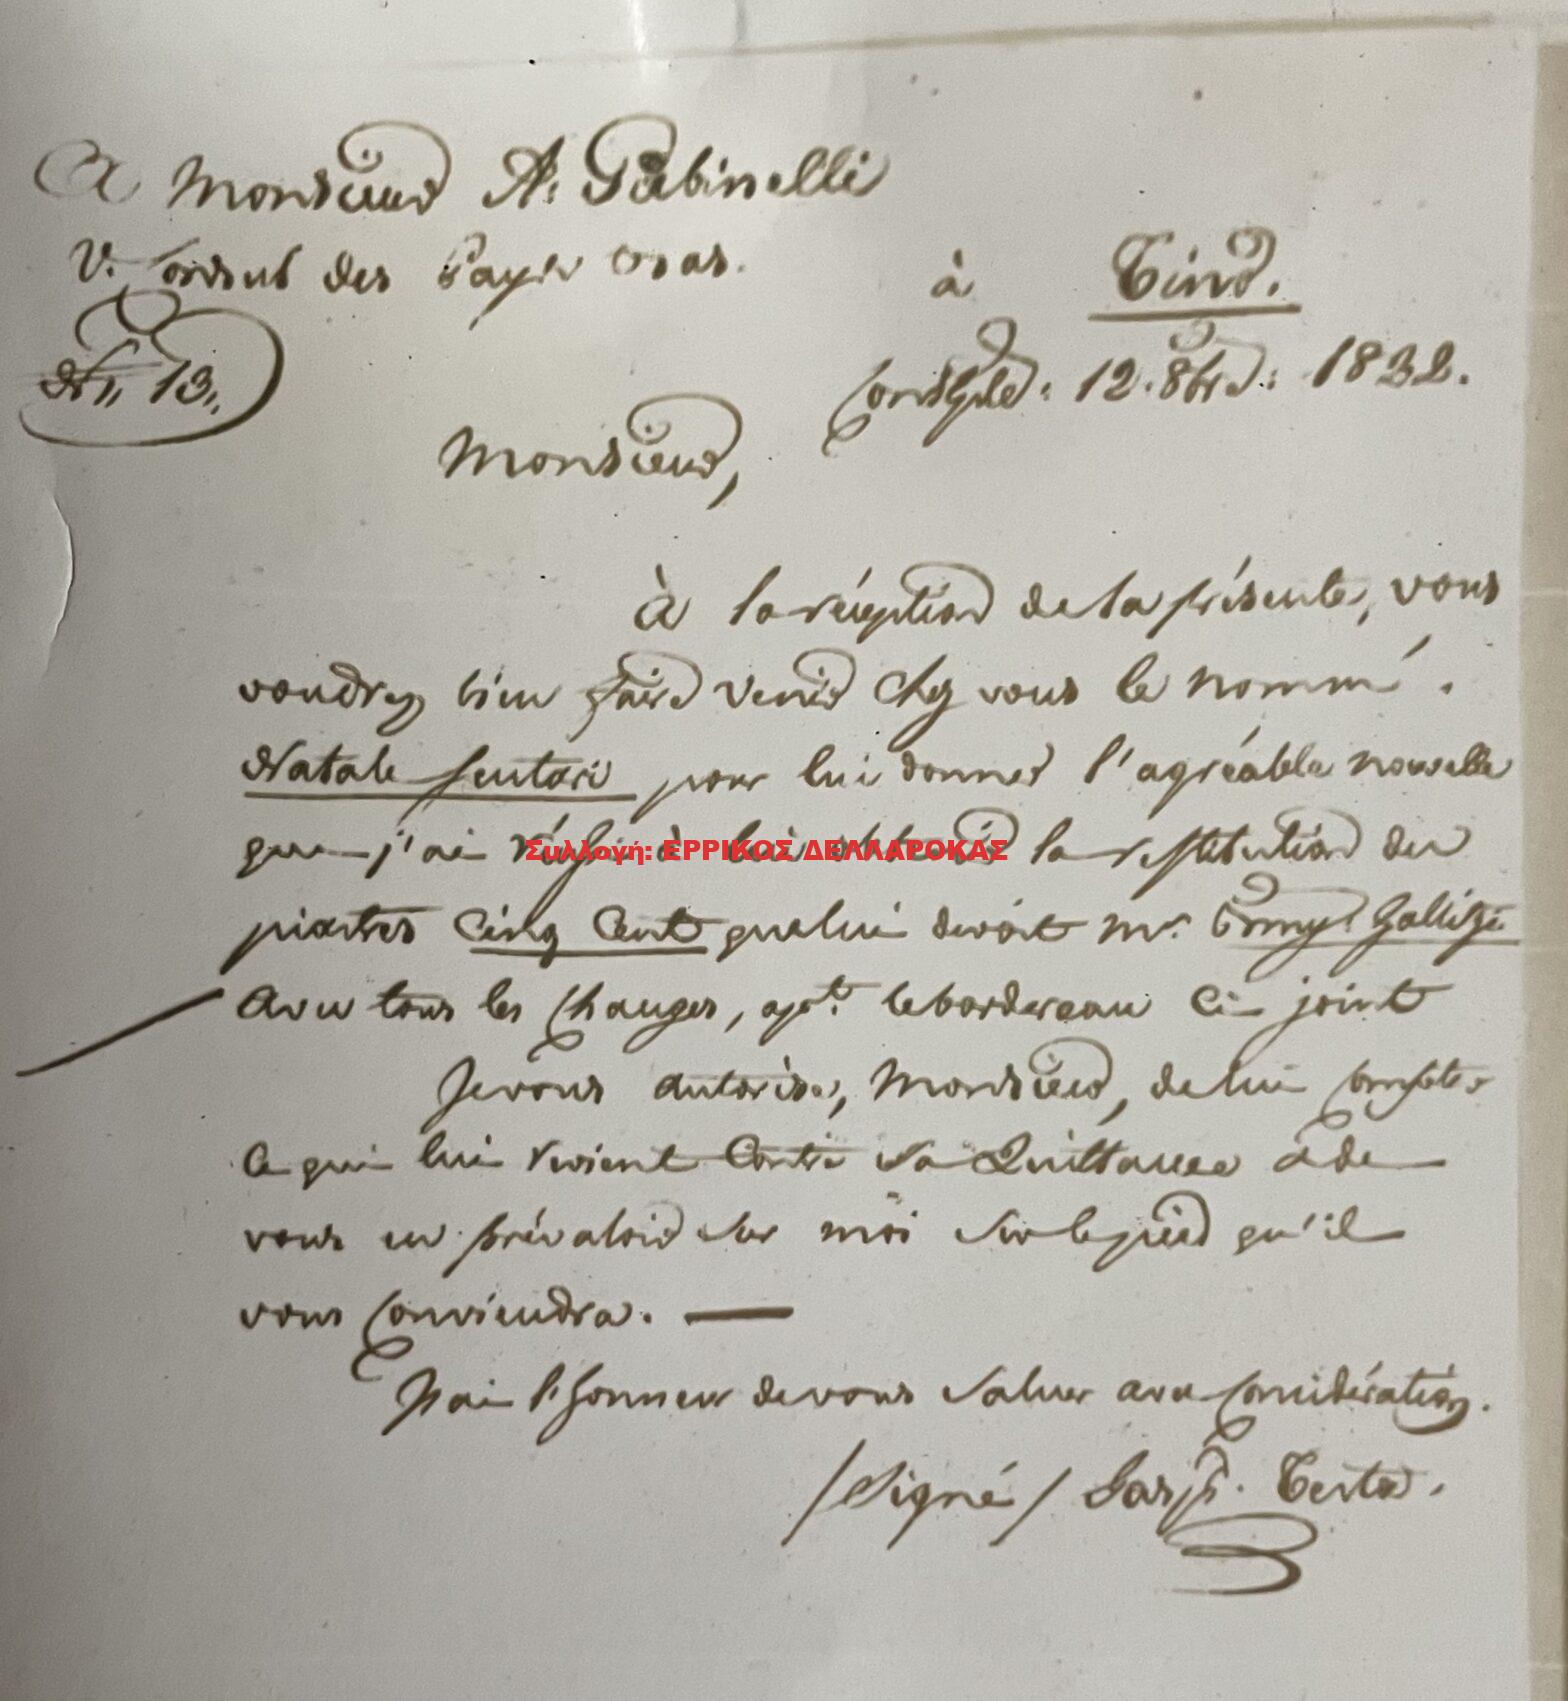 A Monsieur A. Gabinelli
V. Consul des Pays Bas.
à Tine.
N° 13.
Constple. 12. 8bre. 1832.
Monsieur,
à la réception de la présente, vous
voudrez bien faire venir chez vous le nommé
Natale pour lui donner l'agréable nouvelle
que j'ai réussi à lui obtenir la restitution des
Συλλογή: ΕΡΡΙΚΟΣ ΔΕΛΛΑΡΟΚΑΣ
piastres Cinq Cent que lui devoit Mr.
avec tous les changes, le bordereau ci joint
Je vous autorise, Monsieur, de lui compter
ce qui lui revient contre sa Quittance & de
vous en prévaloir sur moi sur le pied qu'il
vous conviendra.
J'ai l'honneur de vous saluer avec considération.
/Signé/ Gasp. Testa.